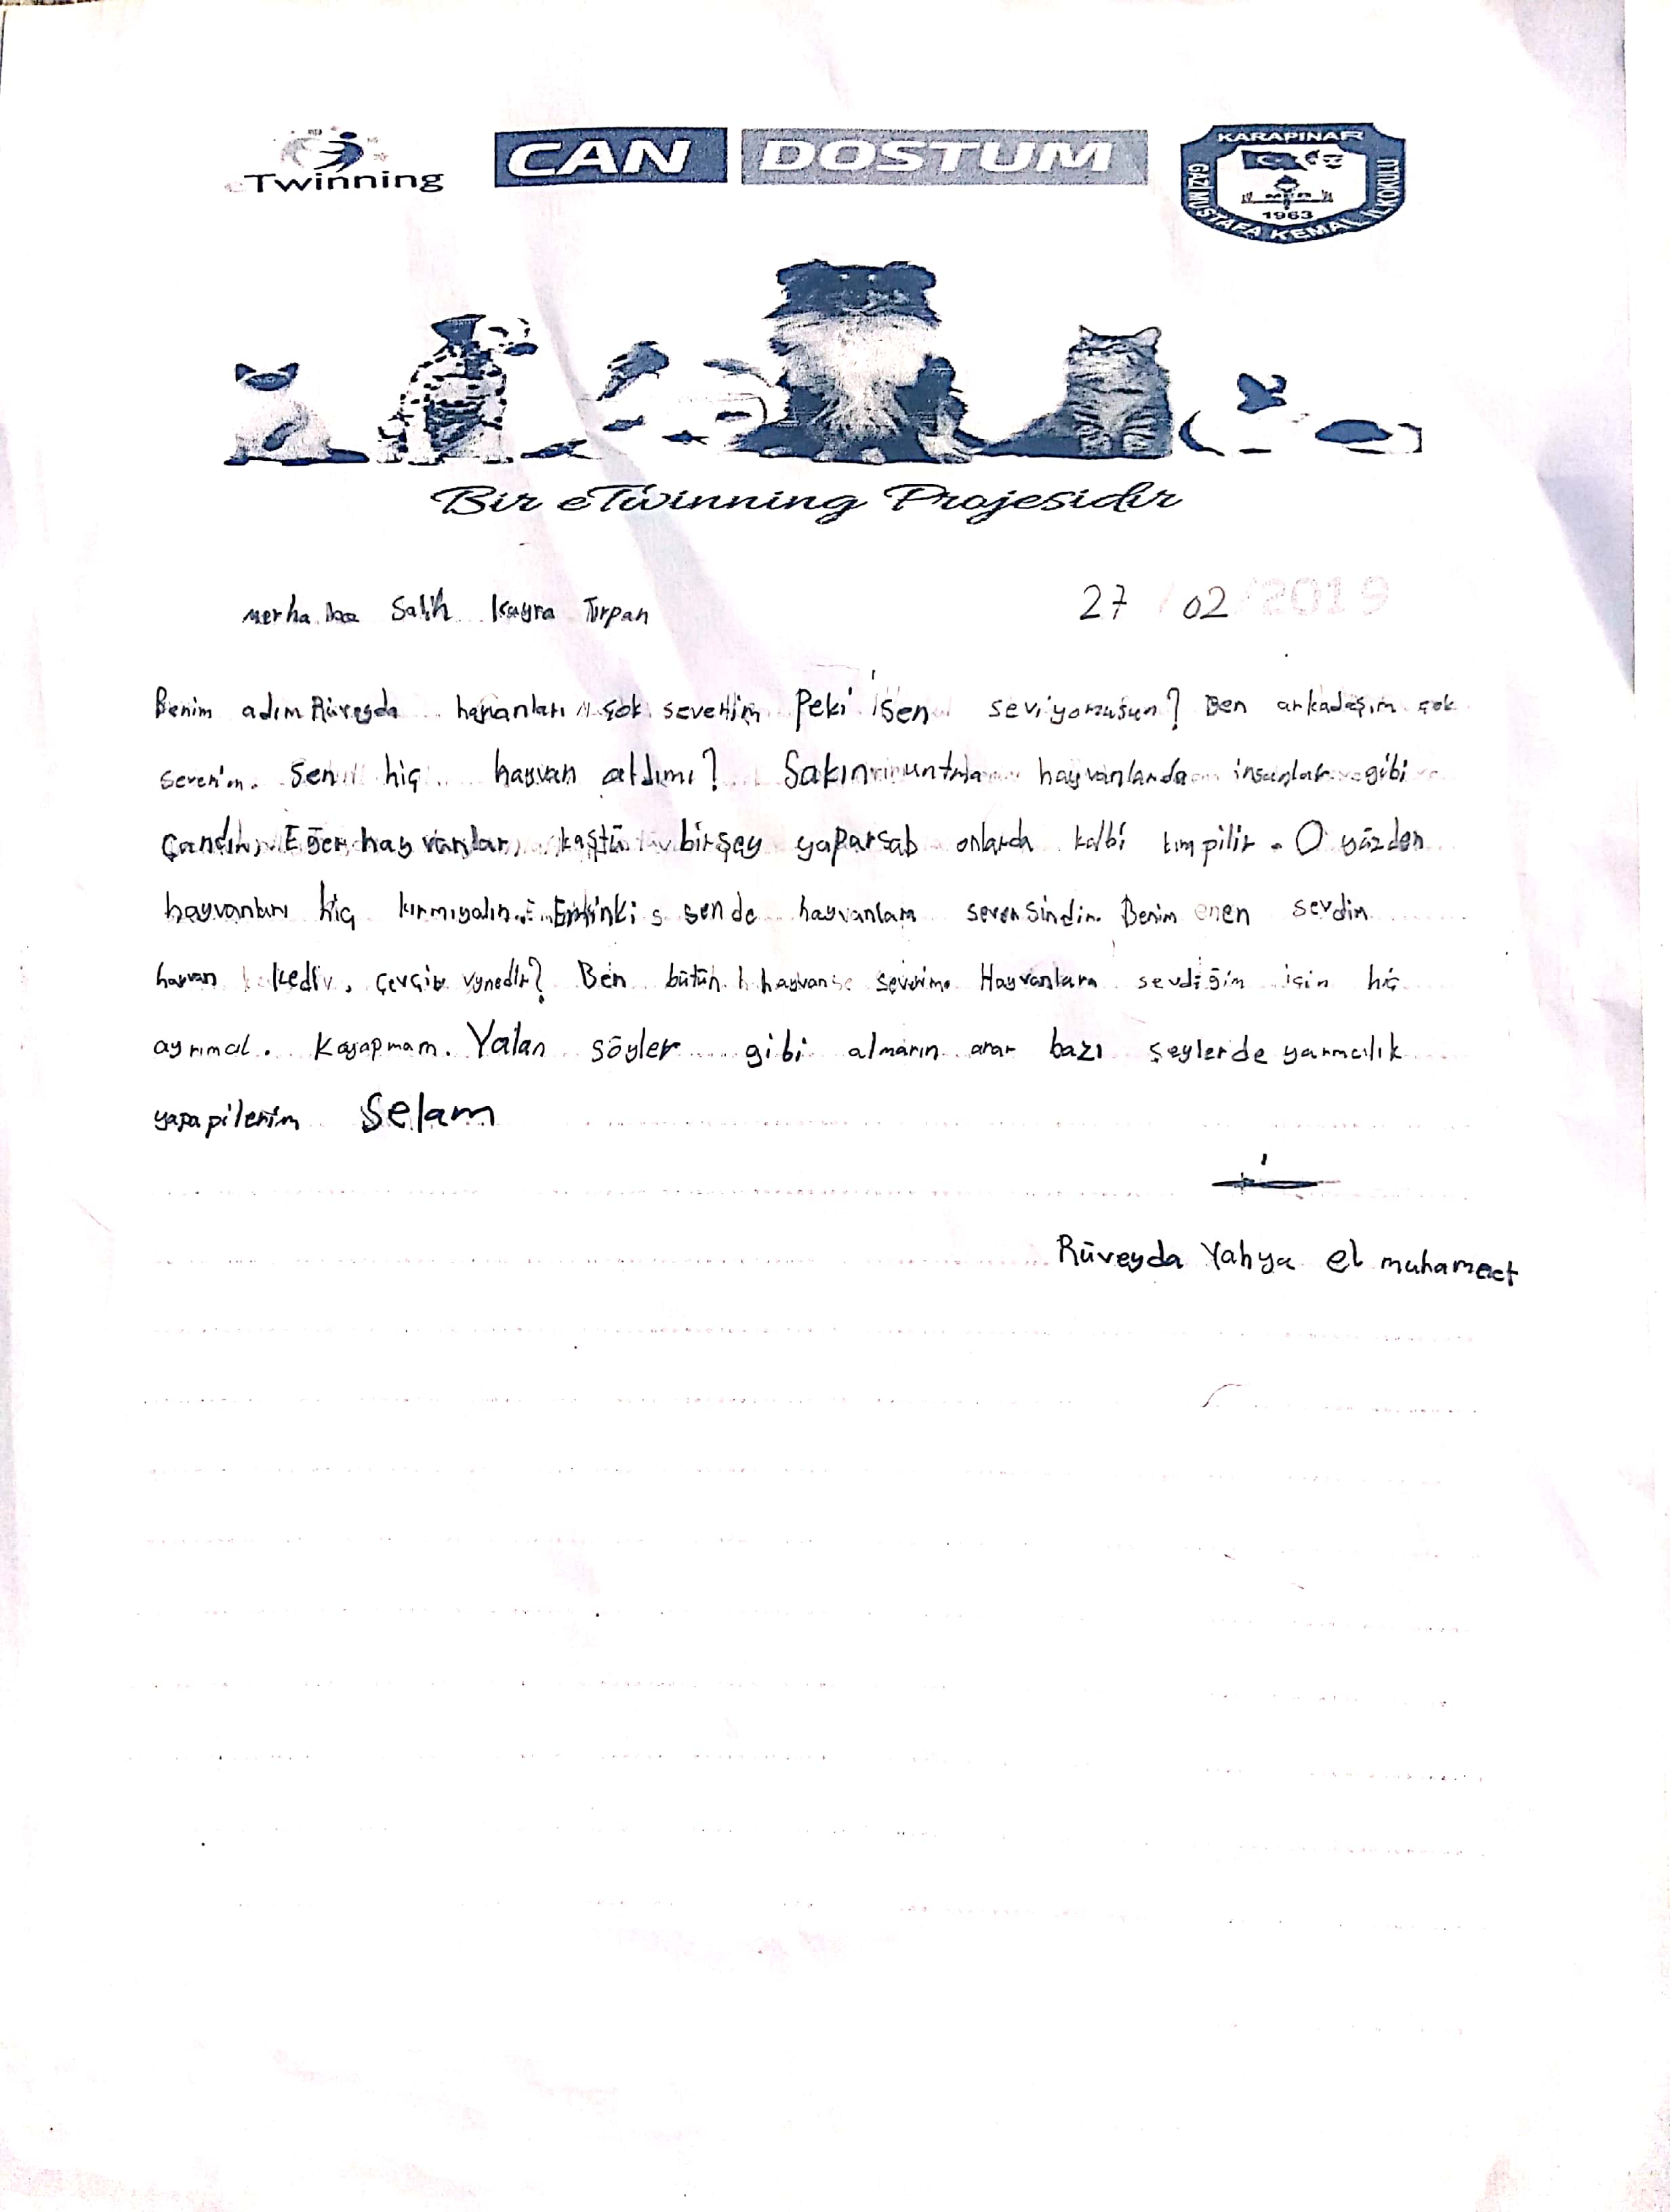 eTwinning
CAN DOSTUM
KARAPINAR
GAZİ MUSTAFA KEMAL İLKOKULU
1963
Bir eTwinning Projesidir
merhaba Salih Kayra Tırpan
27 / 02 / 2019
Benim adım Rüveyda çok severim Peki sen seviyormusun? Ben arkadaşım çok
severim. Sen hiç hayvan aldımı? Sakın hayvanlarda insanlar gibi
Çandır, Eğer hayvanlar birşey yaparsab onlarda kalbi O yüzden
hayvanları hiç kırmıyalın. sende hayvanlara seversindin. Benim enen sevdin
kedir. Ben bütün severim. Hayvanlara sevdiğim için hiç
ayrımcıl. Kayapmam. Yalan söyler gibi almarın arar bazı şeylerde yarmcılık
yapapilerim Selam
Rüveyda Yahya el muhamect